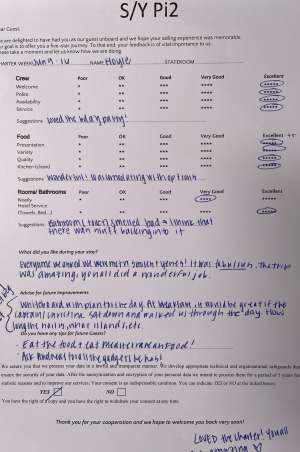 S/Y Pi2
ear Guest,
e are delighted to have had you as our guest onboard and we hope your sailing experience was memorable.
r goal is to offer you a five-star journey. To that end, your feedback is of vital importance to us.
ease take a moment and let us know how we are doing
HARTER WEEK: NAME: Hoyle STATEROOM
Crew Poor OK Good Very Good Excellent
Welcome * ** *** **** *****
Polite * ** *** **** *****
Availability * ** *** **** *****
Service * ** *** **** *****
Suggestions: loved the bday party!
Food Poor OK Good Very Good Excellent
Presentation * ** *** **** *****
Variety * ** *** **** *****
Quality * ** *** **** *****
Kitchen (closed) * ** *** **** *****
Suggestions: Wonderful! Was amazing with options
Rooms/Bathrooms Poor OK Good Very Good Excellent
Neatly * ** *** **** *****
Hotel Service
(Towels, Bed...) * ** *** **** *****
Suggestions: Bathroom smelled bad
there was
What did you like during your stay?
Everyone we
was amazing. you all did a wonderful job.
Advise for future improvements
Whiteboard with plans for the day. At breakfast, it would be great if the
captain/ sat down and walked us through the day. How
long the sail is, what island, etc.
Do you have any tips for future Guests?
- Eat the food & eat Mediterranean food!
- Ask Andreas for all the gadgets he has!
We assure you that we process your data in a lawful and transparent manner. We develop appropriate technical and organizational safeguards that
ensure the security of your data. After the anonymization and encryption of your personal data we intend to process them for a period of 5 years for
statistic reasons and to improve our services. Your consent is an indispensable condition. You can indicate YES or NO at the listed boxes:
YES NO
You have the right of a copy and you have the right to withdraw your consent at any time.
Thank you for your cooperation and we hope to welcome you back very soon!
LOVED the charter! You all
amazing